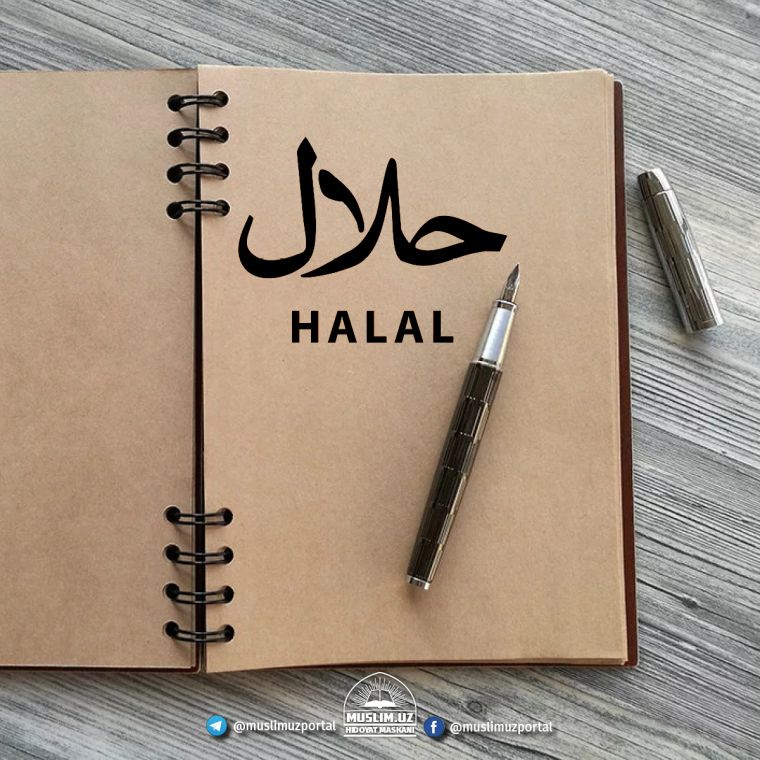 حلال
HALAL
@muslimuzportal
MUSLIM.UZ
HIDOYAT MASKANI
@muslimuzportal